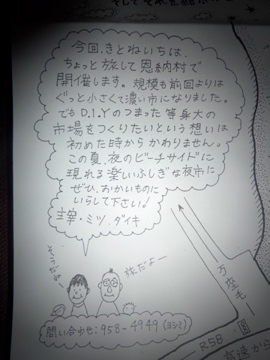 今回、きとねいちは、
ちょっと旅して恩納村で
開催します。規模も前回よりは
ぐっと小さくて濃い市になりました。
でもD.I.Yのつまった等身大の
市場をつくりたいという想いは
初めた時からかわりません。
この夏、夜のビーチサイドに
現れる楽しいふしぎな夜市に
ぜひ、おかいものに
いらして下さい!
主宰・ミツ、ダイキ
そうだね
旅だよー
問い合せ先: 958-4949 (ヨシミ)
万座毛
R58